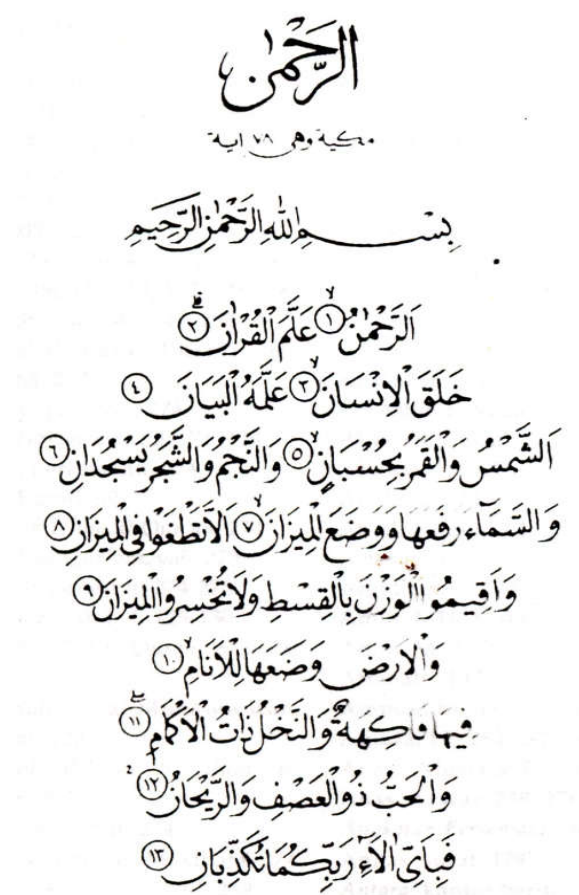 الرَّحْمٰن
مكية وهى ٧٨ اية
بِسْمِ اللهِ الرَّحْمٰنِ الرَّحِيمِ
اَلرَّحْمٰنُ ١ عَلَّمَ الْقُرْاٰنَ ٢
خَلَقَ الْاِنْسَانَ ٣ عَلَّمَهُ الْبَيَانَ ٤
اَلشَّمْسُ وَالْقَمَرُ بِحُسْبَانٍ ٥ وَالنَّجْمُ وَالشَّجَرُ يَسْجُدَانِ ٦
وَالسَّمَآءَ رَفَعَهَا وَوَضَعَ الْمِيزَانَ ٧ اَلَّا تَطْغَوْا فِى الْمِيزَانِ ٨
وَاَقِيمُوا الْوَزْنَ بِالْقِسْطِ وَلَا تُخْسِرُوا الْمِيزَانَ ٩
وَالْاَرْضَ وَضَعَهَا لِلْاَنَامِ ١٠
فِيهَا فَاكِهَةٌ وَالنَّخْلُ ذَاتُ الْاَكْمَامِ ١١
وَالْحَبُّ ذُو الْعَصْفِ وَالرَّيْحَانُ ١٢
فَبِاَىِّ اٰلَآءِ رَبِّكُمَا تُكَذِّبَانِ ١٣